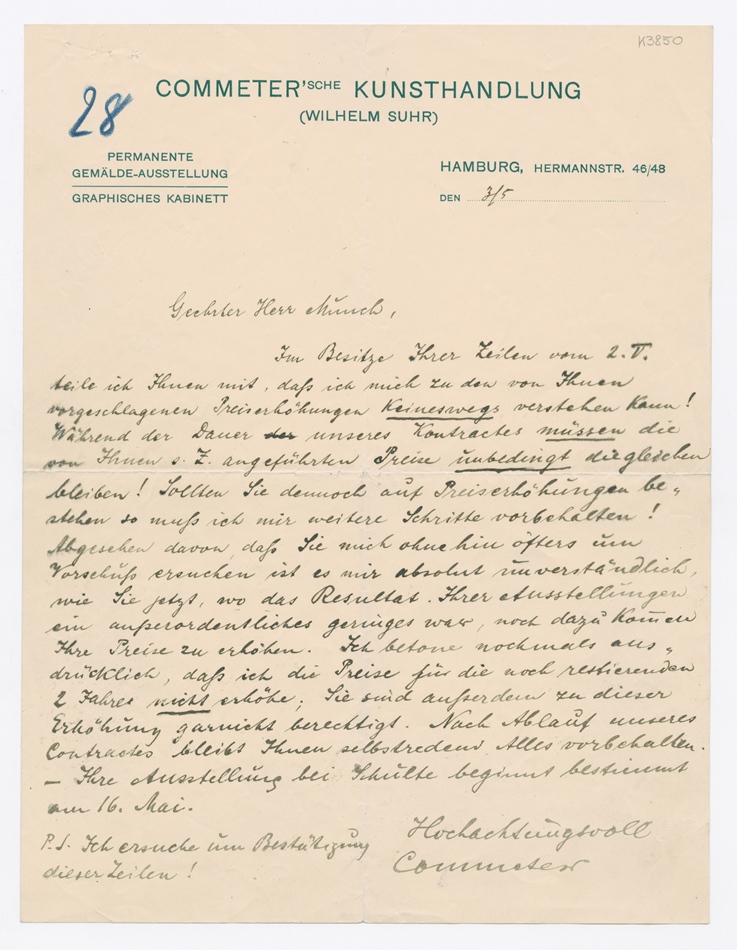 K3850
COMMETER'SCHE KUNSTHANDLUNG
(WILHELM SUHR)
28
PERMANENTE
GEMÄLDE-AUSSTELLUNG
GRAPHISCHES KABINETT
HAMBURG, HERMANNSTR. 46/48
DEN 3/5
Geehrter Herr Munch,
Im Besitze Ihrer Zeilen vom 2. V.
teile ich Ihnen mit, daß ich mich zu den von Ihnen
vorgeschlagenen Preiserhöhungen keineswegs verstehen kann!
Während der Dauer der unseres Kontractes müssen die
von Ihnen s. Z. angeführten Preise unbedingt diegleichen
bleiben! Sollten Sie dennoch auf Preiserhöhungen be„
stehen so muß ich mir weitere Schritte vorbehalten!
Abgesehen davon, daß Sie mich ohnehin öfters um
Vorschuß ersuchen ist es mir absolut unverständlich,
wie Sie jetzt, wo das Resultat Ihrer Ausstellungen
ein außerordentliches geringes war, noch dazu kom̄en
Ihre Preise zu erhöhen. Ich betone nochmals aus„
drücklich, daß ich die Preise für die noch restierenden
2 Jahre nicht erhöhe; Sie sind außerdem zu dieser
Erhöhung garnicht berechtigt. Nach Ablauf unseres
Contractes bleibt Ihnen selbstredend Alles vorbehalten.
— Ihre Ausstellung bei Schulte beginnt bestimmt
am 16. Mai.
Hochachtungsvoll
Commeter
P.S. Ich ersuche um Bestätigung
dieser Zeilen!